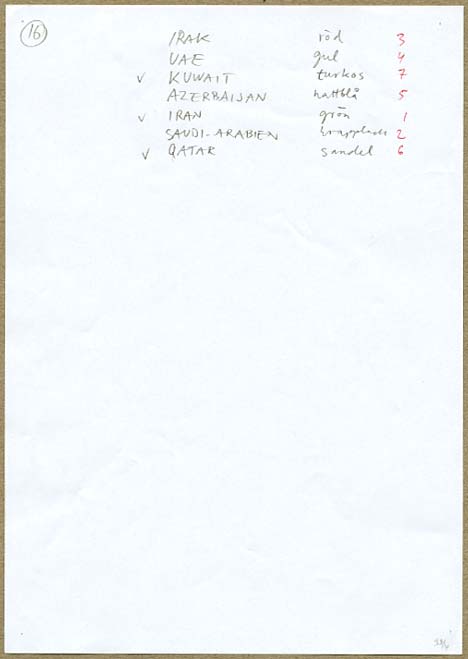 16
IRAK röd 3
UAE gul 4
✓ KUWAIT turkos 7
AZERBAIJAN nattblå 5
✓ IRAN grön 1
SAUDI-ARABIEN krapplack 2
✓ QATAR sandel 6